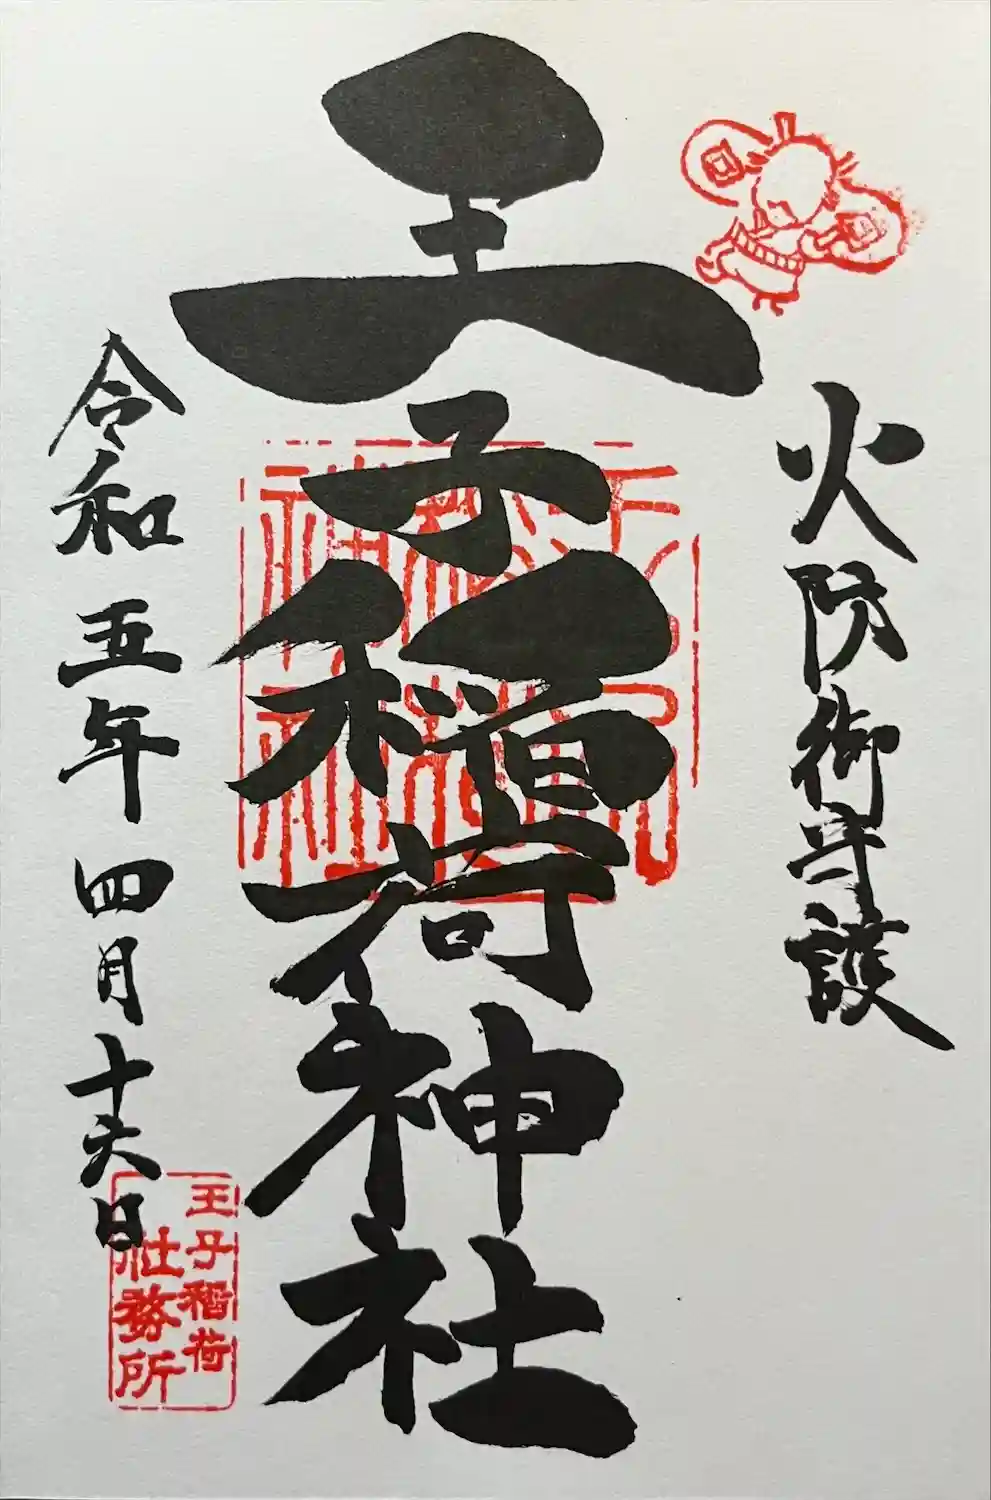 火防御守護
王子稲荷神社
令和五年 四月十六日
王子稲荷
社務所